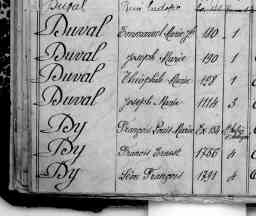 Duval
Duval Emmanuel Marie Jh 180 1
Duval Joseph Marie 190 1
Duval Théophile Marie 198 1
Duval Joseph Marie 1114 3
Dy François Louis Marie
Dy Francis Ernest 1756 4
Dy Léon François 1791 4